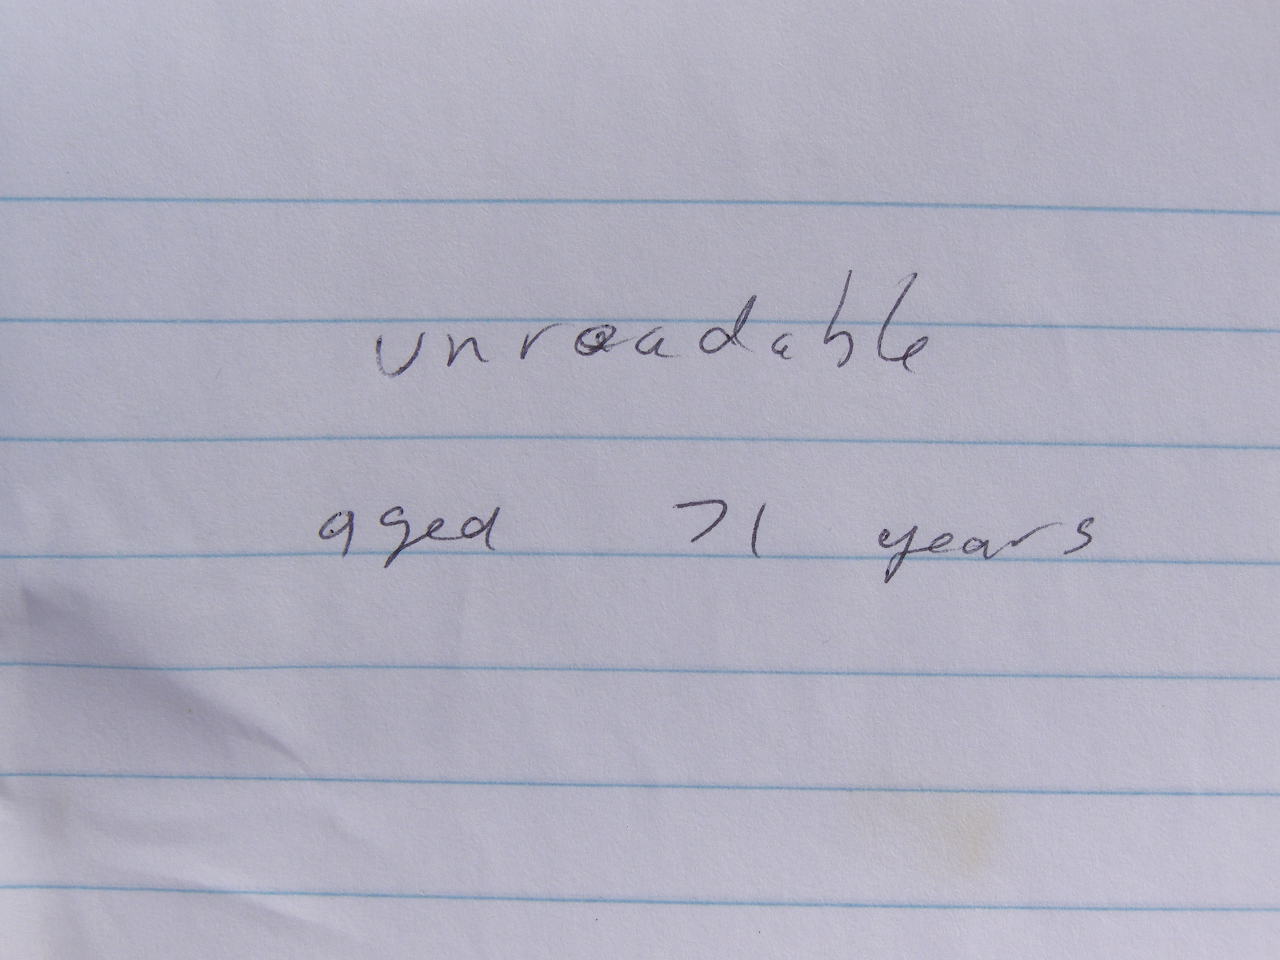 unreadable
aged 71 years